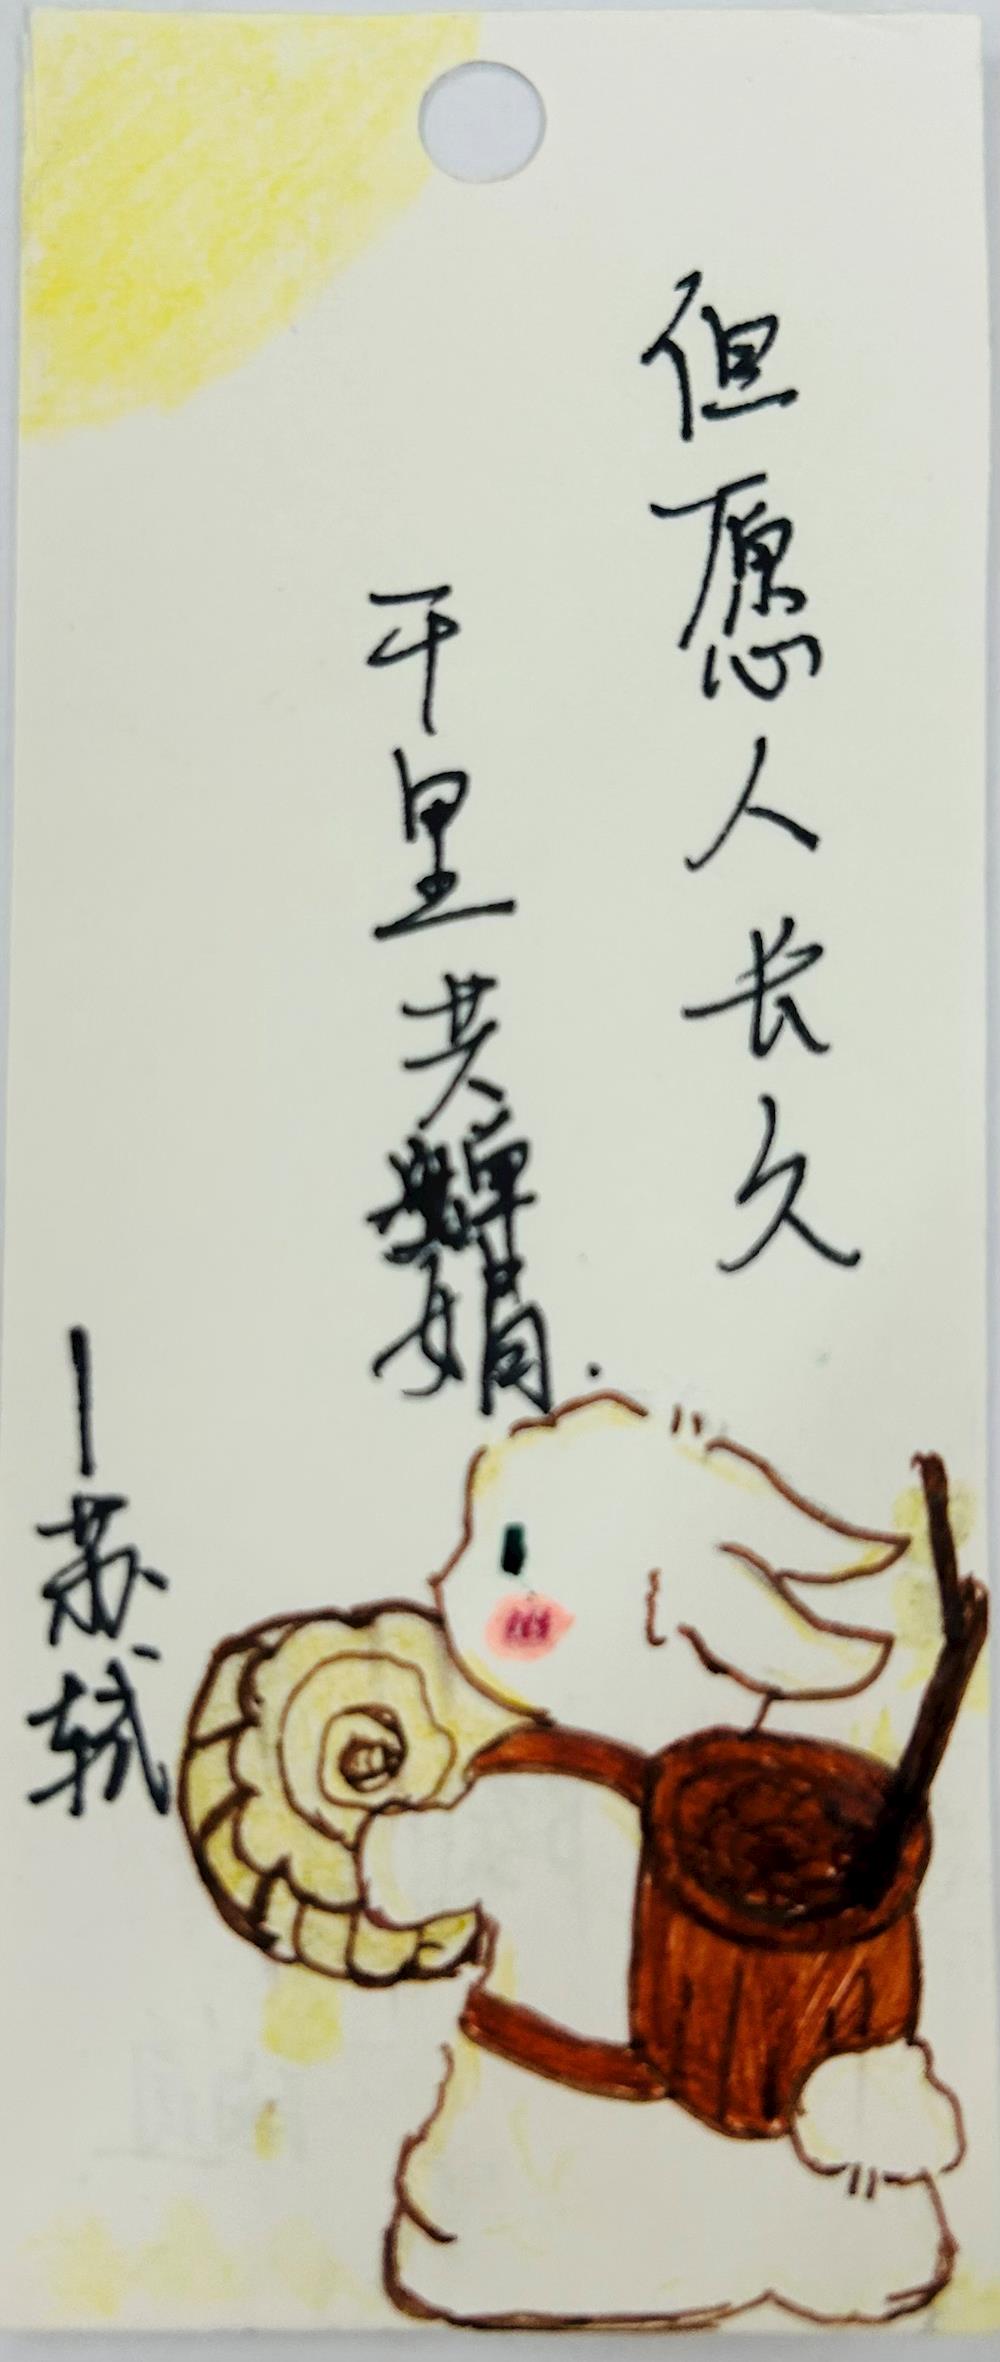 但愿人长久
千里共婵娟.
—苏轼